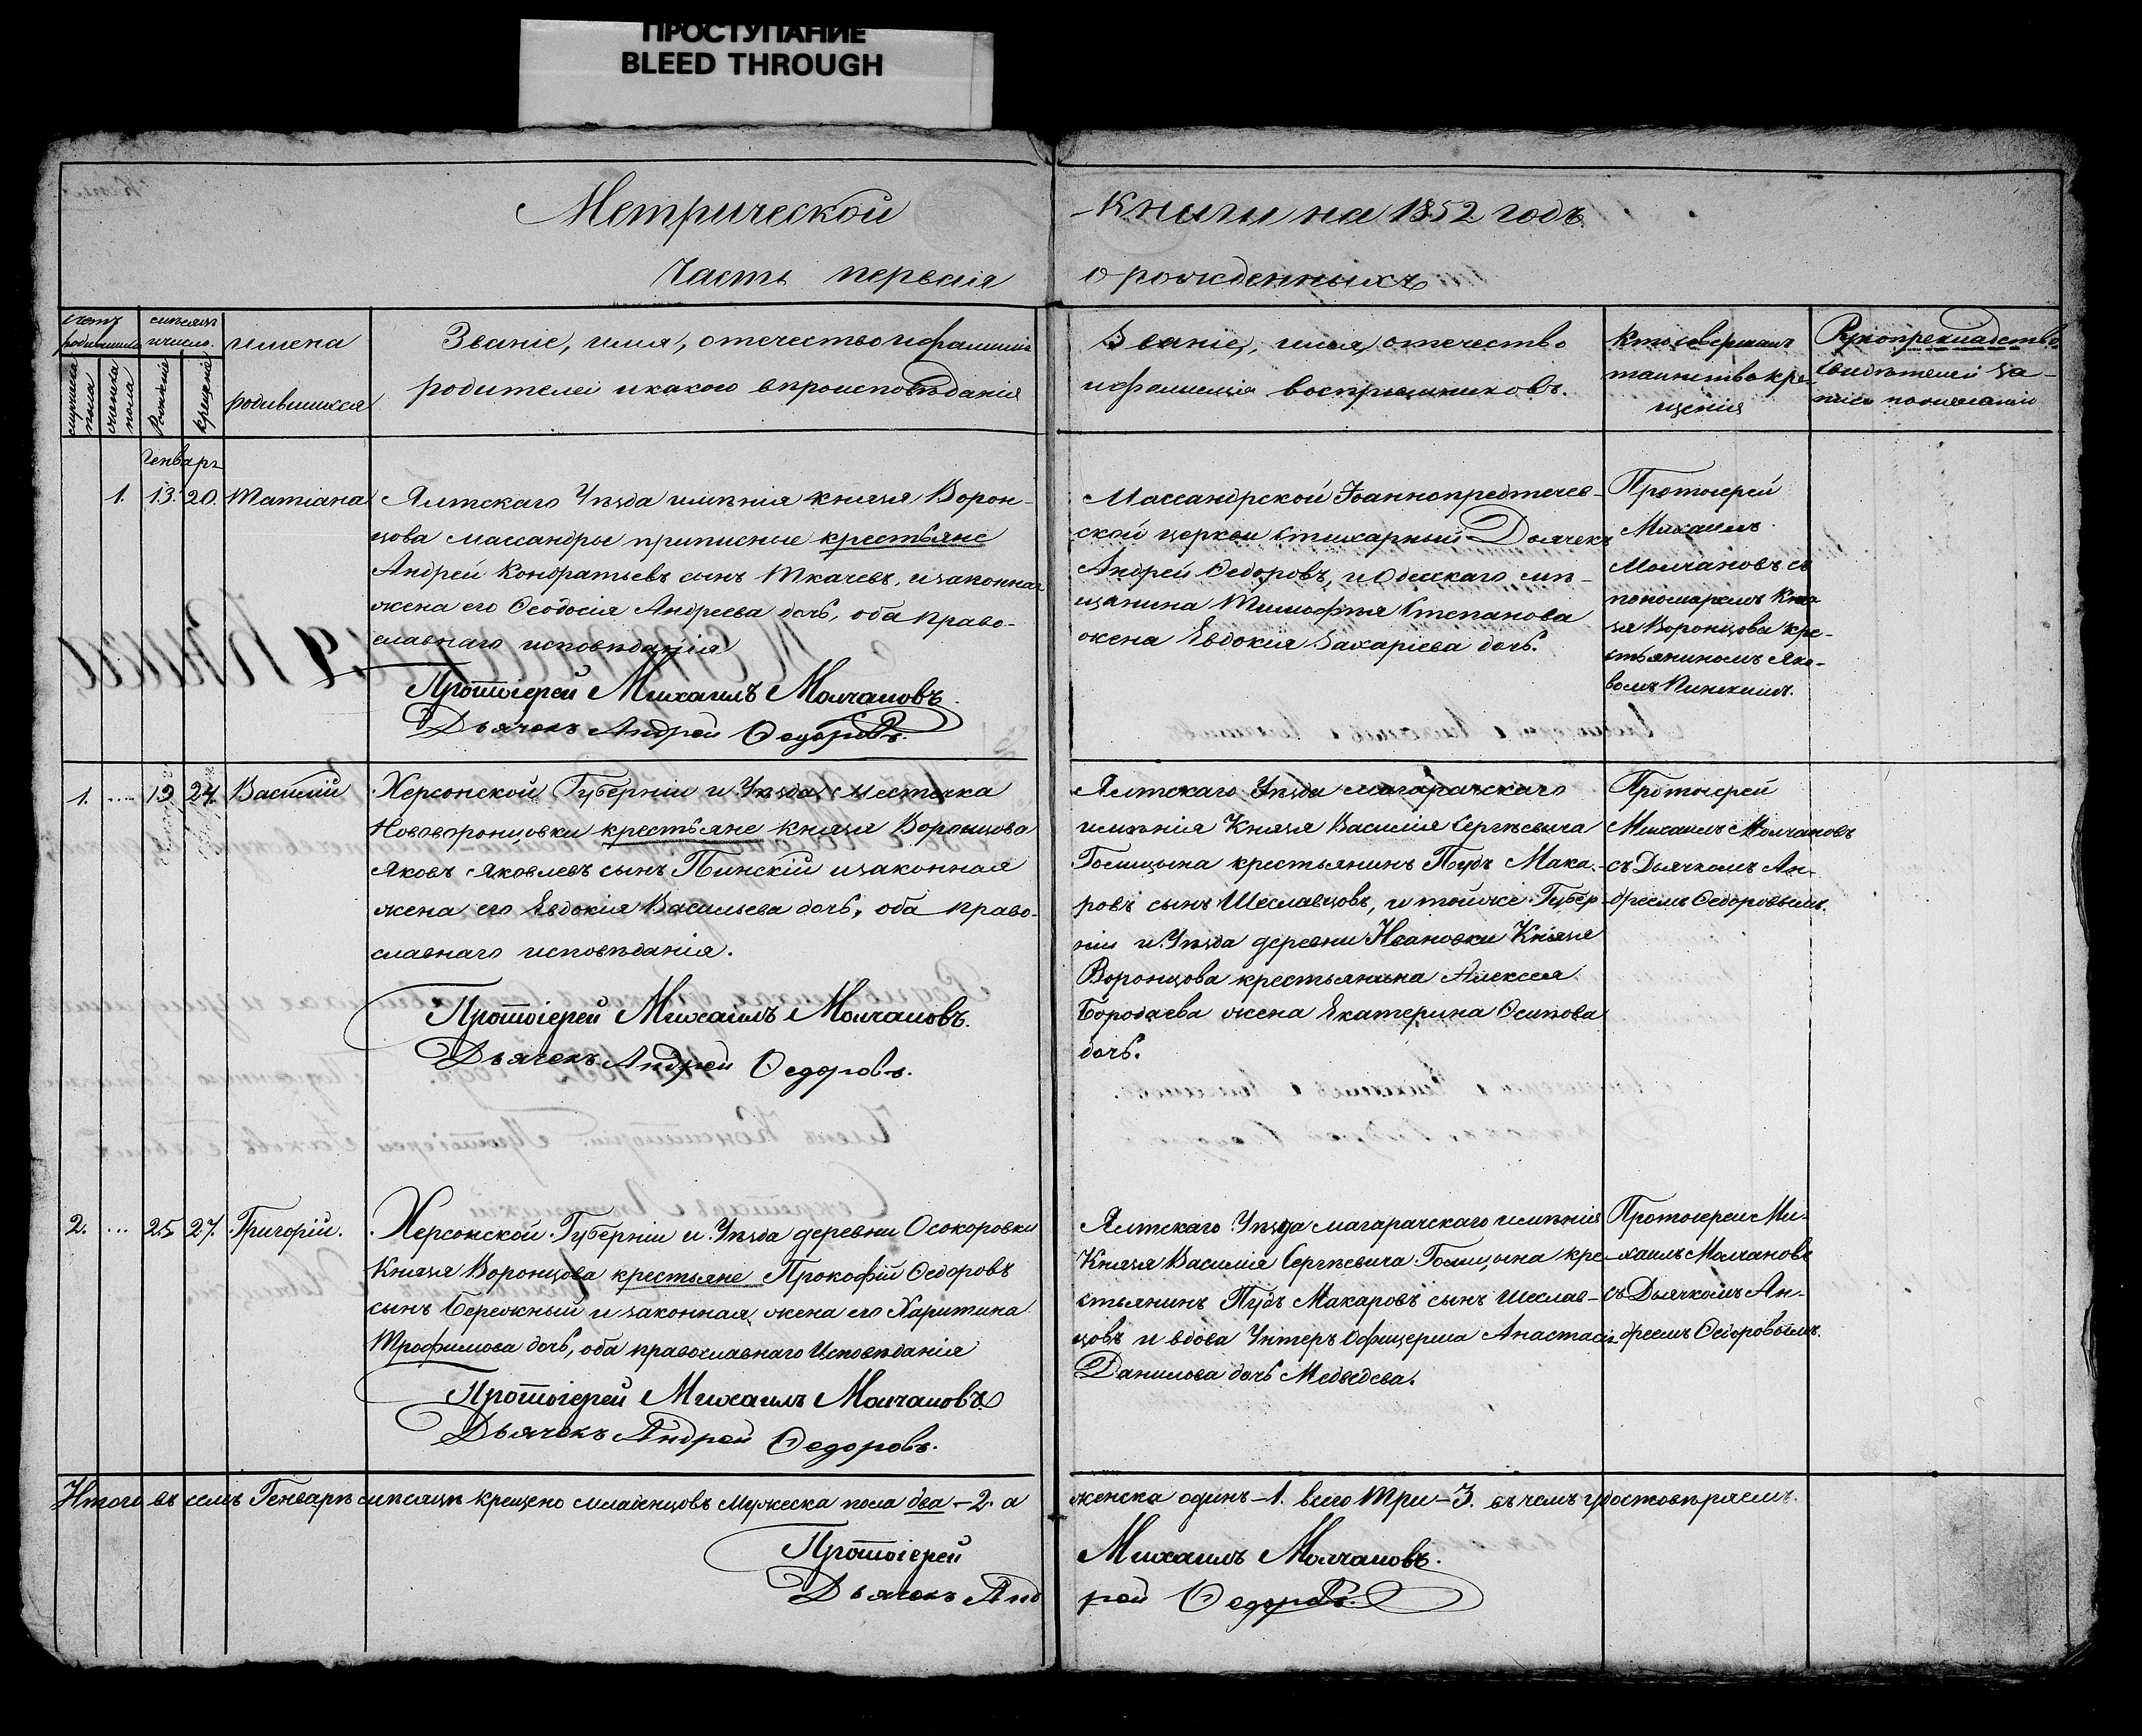 ПРОСТУПАНИЕ
BLEED THROUGH
Метрической книги на 1852 годъ.
Часть первая о рожденныхъ
счетъ родившихся
мужеска пола
женска пола
мѣсяцъ и число.
Рожденія
крещенія
имена родившихся
Званіе, имя, отечество и фамилія
родителей и какого вѣроисповѣданія
Званіе, имя, отечество
и фамилія воспріемниковъ.
Кто совершалъ
таинство кре-
щенія
Рукоприкладство
свидѣтелей за-
писи по желанію
Генварь
1. 13. 20. Татіана
Ялтскаго Уѣзда имѣнія князя Ворон-
цова Массандры приписные крестьяне
Андрей Кондратьевъ сынъ Ткачевъ, и законная
жена его Ѳеодосія Андреева дочь, оба право-
славнаго исповѣданія
Протоіерей Михаилъ Молчановъ.
Дьячекъ Андрей Ѳедоровъ.
Массандрской Іоаннопредтечев-
ской церкви стихарный Дьячекъ
Андрей Ѳедоровъ, и Одесскаго мѣ-
щанина Тимофѣя Степанова
жена Евдокія Захаріева дочь.
Протоіерей
Михаилъ
Молчановъ съ
пономаремъ Кня-
зя Воронцова кре-
стьяниномъ Яко-
вомъ Пинскимъ.
1. .... 19 24. Василій
Херсонской Губерніи и Уѣзда мѣстечка
Нововоронцовки крестьяне князя Воронцова
Яковъ Яковлевъ сынъ Пинскій и законная
жена его Евдокія Васильева дочь, оба право-
славнаго исповѣданія.
Протоіерей Михаилъ Молчановъ.
Дьячекъ Андрей Ѳедоровъ.
Ялтскаго Уѣзда Магарачскаго
имѣнія Князя Василія Сергѣевича
Голицына крестьянинъ Пудъ Мака-
ровъ сынъ Шеславцовъ, и тойже Губер-
ніи и Уѣзда деревни Ивановки Князя
Воронцова крестьянина Алексея
Бородаева жена Екатерина Осипова
дочь.
Протоіерей
Михаилъ Молчановъ
съ Дьячкомъ Ан-
дреемъ Ѳедоровымъ.
2. ... 25 27. Григорій.
Херсонской Губерніи и Уѣзда деревни Осокоровки
Князя Воронцова крестьяне Прокофій Ѳедоровъ
сынъ Бережный и законная жена его Харитина
Трофимова дочь, оба православнаго Исповѣданія
Протоіерей Михаилъ Молчановъ
Дьячекъ Андрей Ѳедоровъ.
Ялтскаго Уѣзда Магарачскаго имѣнія
Князя Василія Сергѣевича Голицына кре-
стьянинъ Пудъ Макаровъ сынъ Шеслав-
цовъ и вдова Унтеръ Офицерша Анастасія
Данилова дочь Медвѣдева.
Протоіерей Ми-
хаилъ Молчановъ
съ Дьячкомъ Ан-
дреемъ Ѳедоровымъ.
Итого въ семъ Генварѣ мѣсяцѣ крещено младенцовъ Мужеска пола два - 2. а женска одинъ - 1. всего Три - 3. въ чемъ удостовѣряемъ.
Протоіерей Михаилъ Молчановъ.
Дьячекъ Андрей Ѳедоровъ.